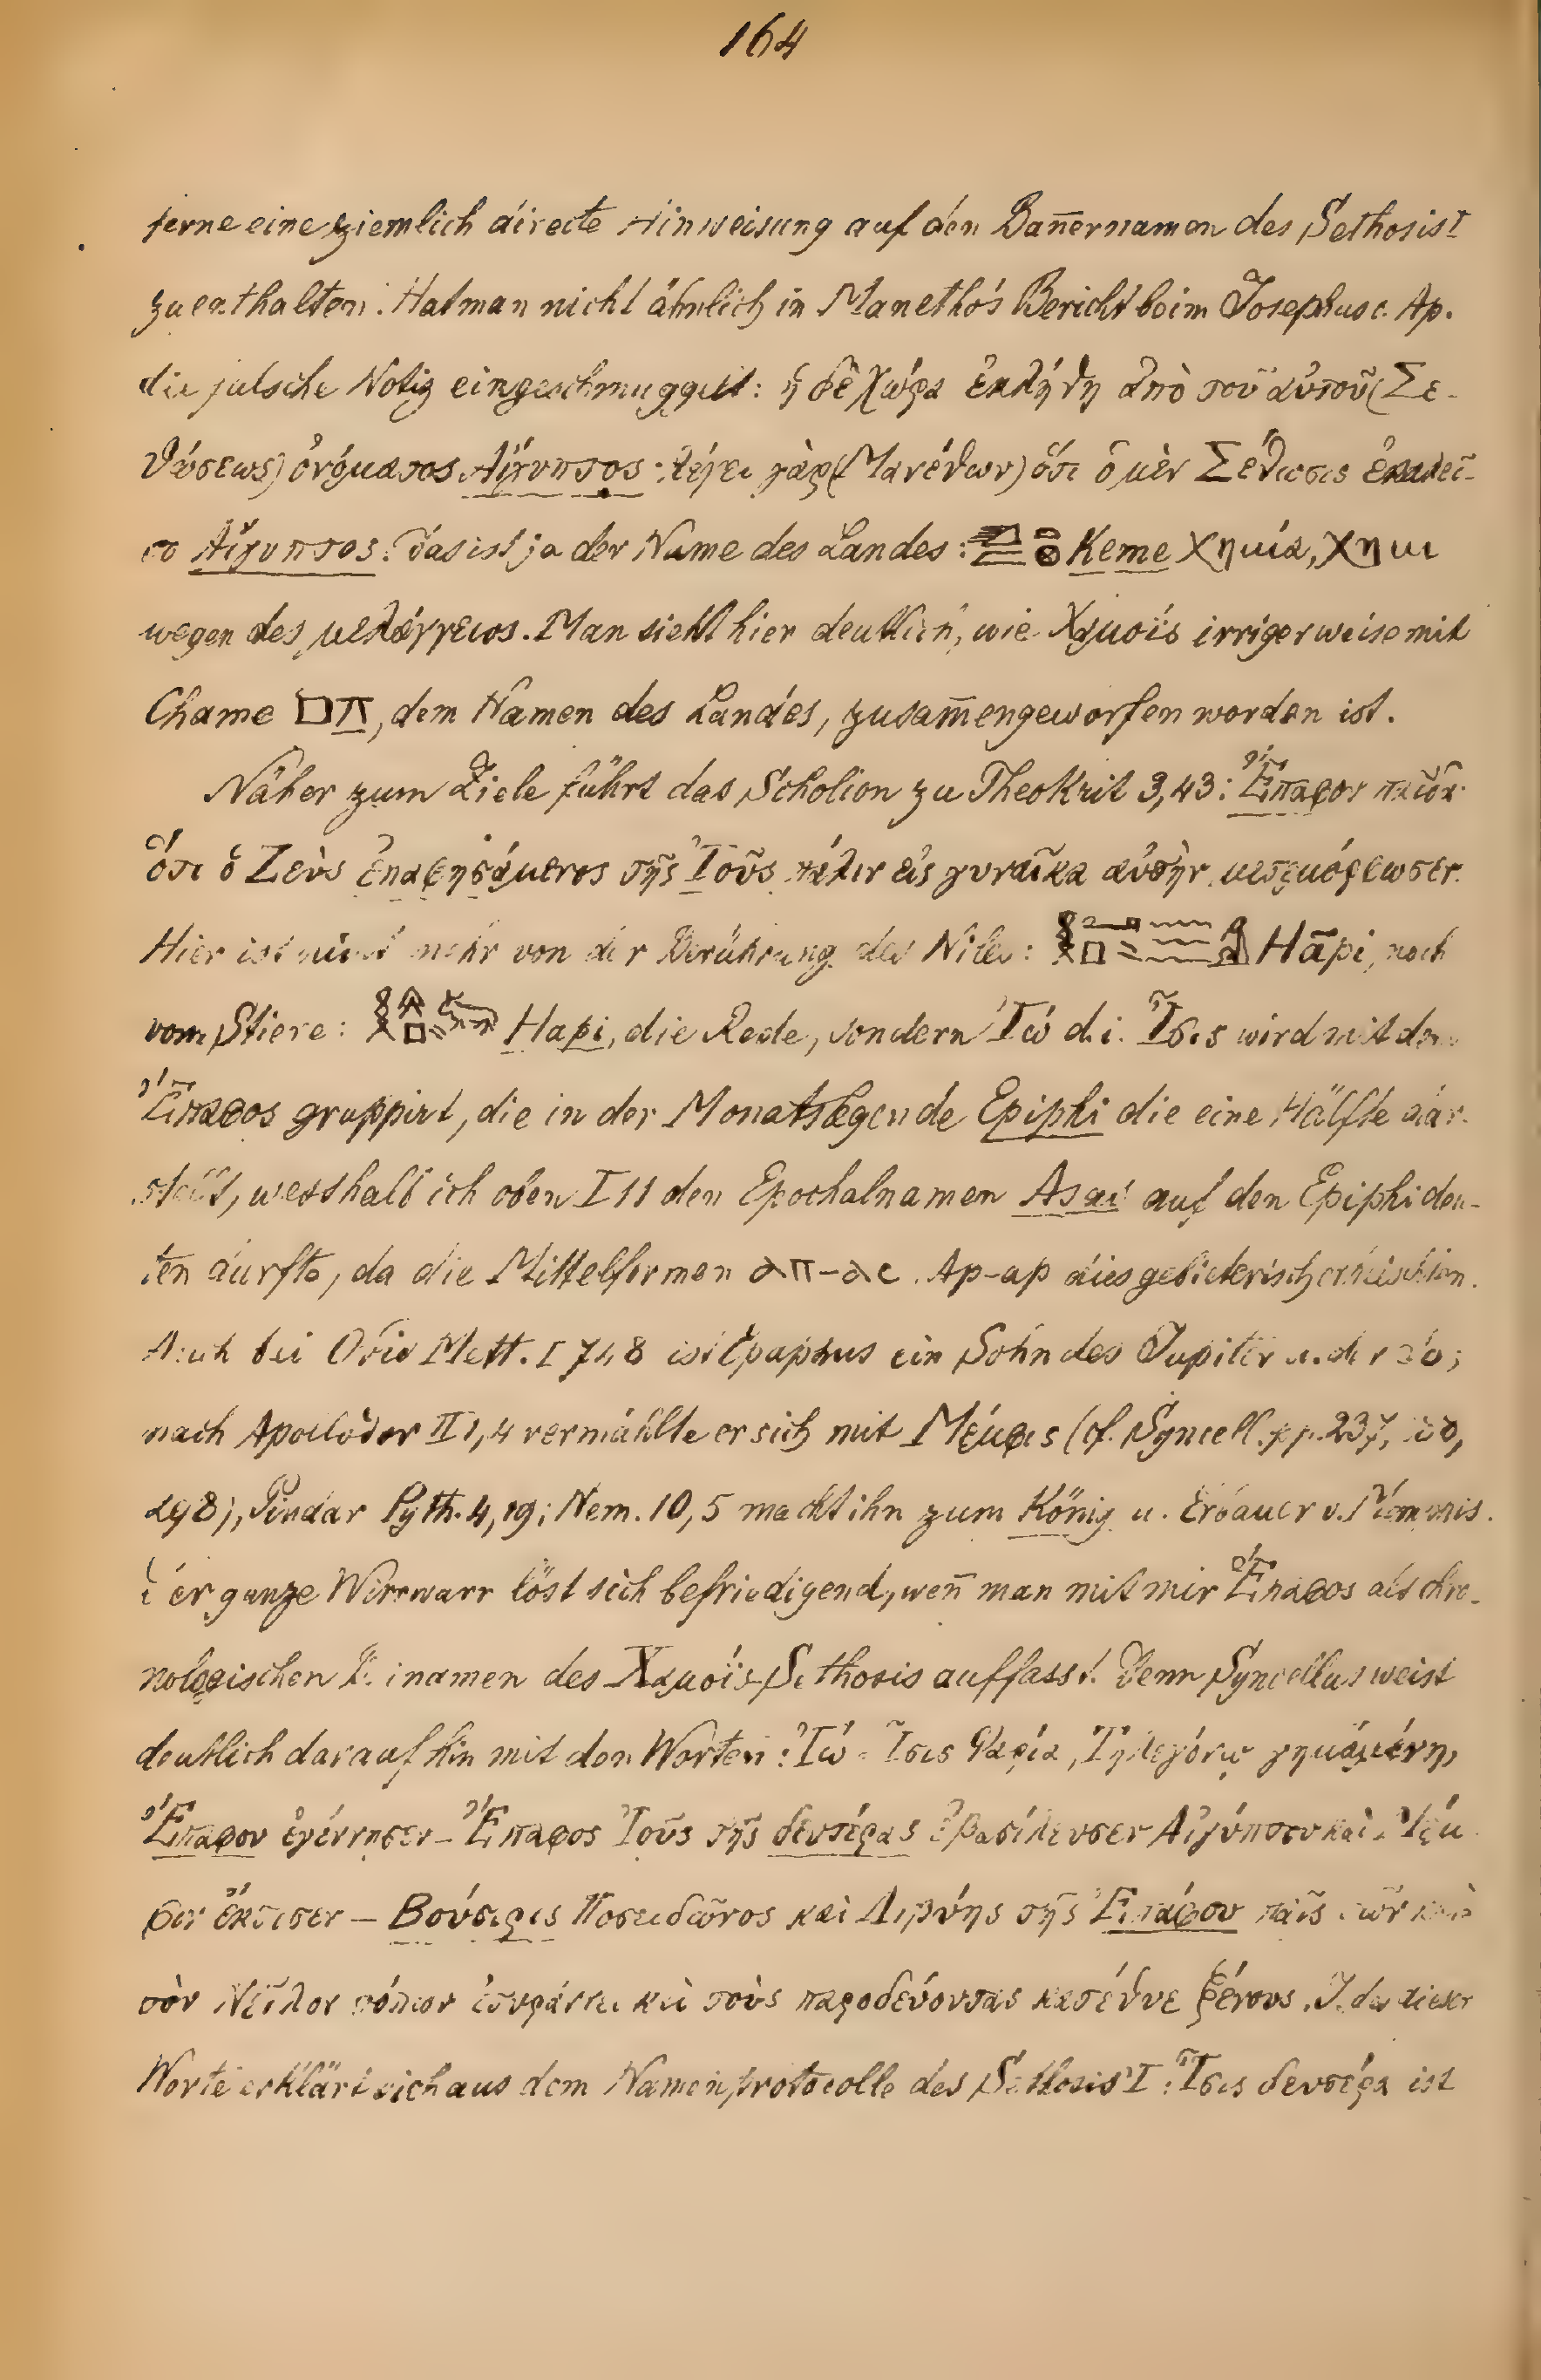 164
ferne eine ziemlich directe Hinweisung auf den Bannernamen des Sethosis I
zu enthalten. Hat man nicht ähnlich in Manetho's Bericht beim Josephus c. Ap.
die falsche Notiz eingeschmuggelt: ἡ δὲ χώρα ἐκλήθη ἀπὸ τοῦ αὐτοῦ (Σε-
θώσεως) ὀνόματος Αἴγυπτος: λέγει γὰρ (Μανέθων) ὅτι ὁ μὲν Σέθωσις ἐκαλεῖ-
το Αἴγυπτος. Das ist ja der Name des Landes: Keme Χημία, Χημι
wegen des μελάγγειος. Man sieht hier deutlich, wie Χαμοϊς irriger weise mit
Chame, dem Namen des Landes, zusam̅engeworfen worden ist.
Näher zum Ziele führt das Scholion zu Theokrit 3,43: Ἔπαφον παῖδα
ὅτι ὁ Ζεὺς ἐπαφησάμενος τῆς Ἰοῦς πάλιν εἰς γυναῖκα αὐτὴν μετεμόρφωσεν.
Hier ist nicht mehr von der Berührung des Niles: Hāpi, noch
vom Stiere: Hapi, die Rede, sondern Ἰώ d.i. Ἶσις wird mit dem
Ἔπαφος gruppirt, die in der Monatslegende Epiphi die eine Hälfte dar-
stellt, wesshalb ich oben I 11 den Epochalnamen auf den Epiphi deu-
ten durfte, da die Mittelformen Ap-ap dies gebieterisch erheischen.
Auch bei Ovid Mett. I 748 ist Epaphus ein Sohn des Jupiter u. der Io;
nach Apollodor II 1,4 vermählte er sich mit Μέμφις (cf. Syncell. pp. 237,
298), Pindar Pyth. 4,19; Nem. 10,5 macht ihn zum König u. Erbauer v. Memphis.
Der ganze Wirrwarr löst sich befriedigend, wen̅ man mit mir Ἔπαφος als chro-
nologischen Beinamen des Χαμοϊς-Sethosis auffasst. Denn Syncellus weist
deutlich darauf hin mit den Worten: Ἰώ = Ἶσις Φαρία, Τηλεγόνῳ γημαμένη,
Ἔπαφον ἐγέννησεν – Ἔπαφος Ἰοῦς τῆς δευτέρας ἐβασίλευσεν Αἰγύπτου καὶ Μέμ-
φιν ἔκτισεν – Βούσιρις Ποσειδῶνος καὶ Λιβύης τῆς Ἐπάφου παῖς τῶν κατὰ
τὸν Νεῖλον τόπων ἐτυράννει καὶ τοὺς παροδεύοντας κατέθυε ξένους. Jedes dieser
Worte erklärt sich aus dem Namenprotocolle des Sethosis I: Ἶσις δευτέρα ist